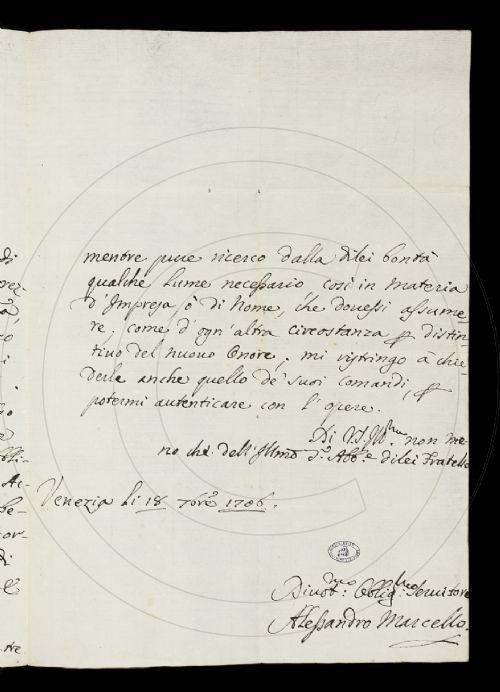 mentre pure ricerco dalla dilei bontà
qualche Lume necessario, così in Materia
d'Impresa, ò di Nome, che dovessi assume-
re, come d'ogn'altra circostanza p distin-
tivo del nuovo Onore; mi ristringo à chie-
derle anche quello de' suoi comandi, p
potermi autenticare con l'opere.
Di V.S. Ill.ma non me-
no che dell'Illmo S.r Abb.e dilei Fratello
Venezia li 18 7bre 1706.
Divot.mo Oblig.mo Servitore
Alessandro Marcello.